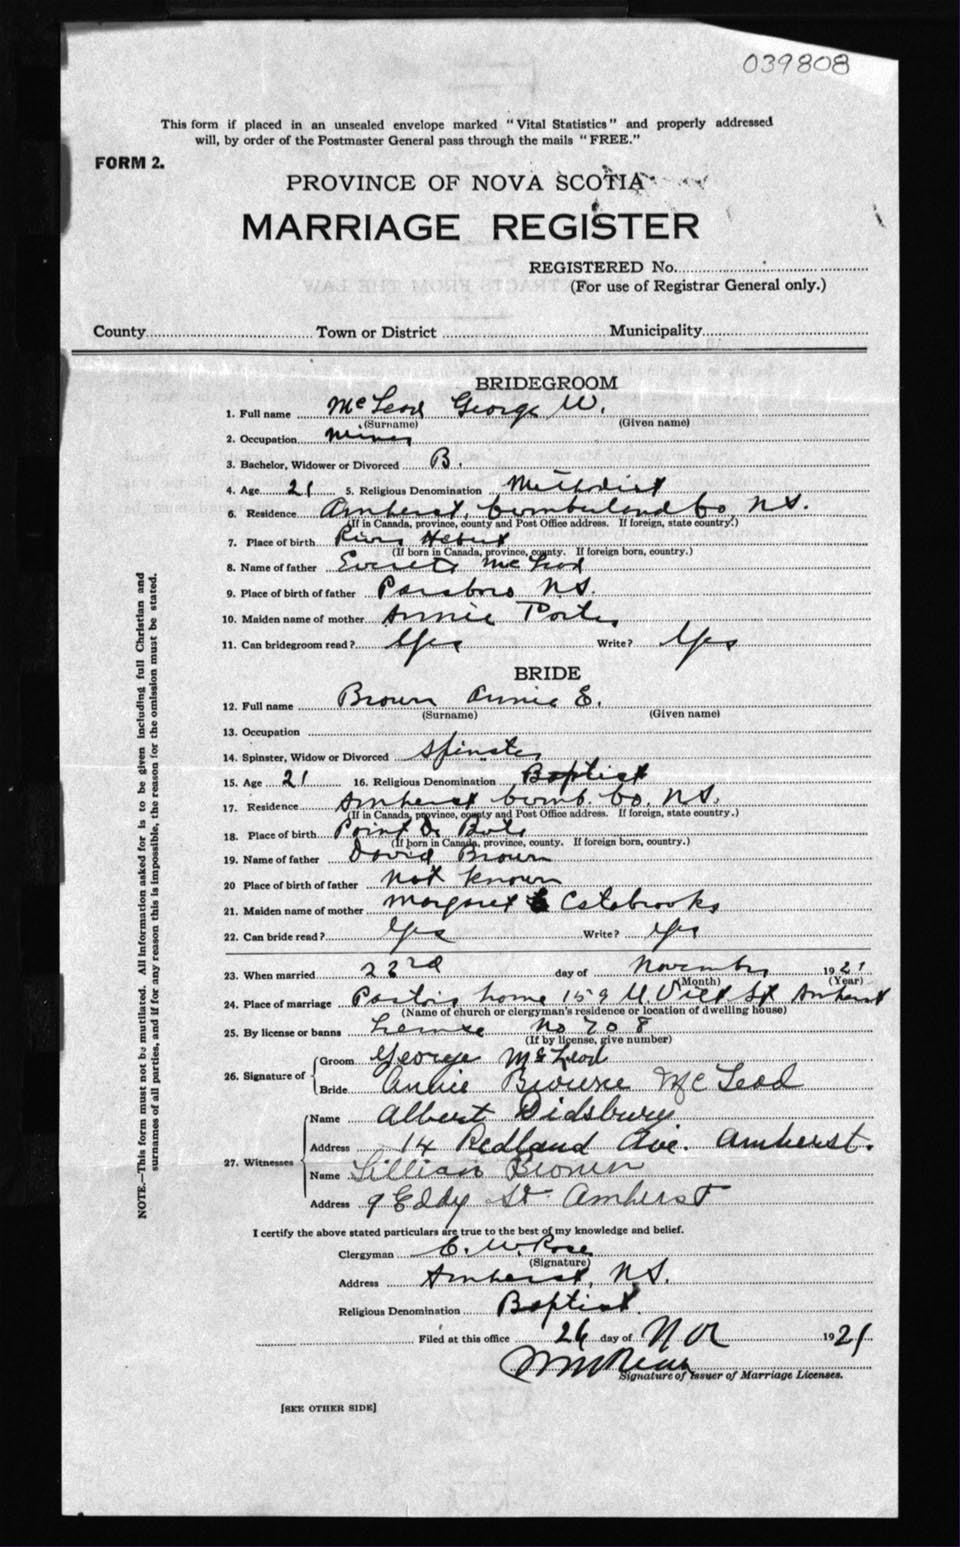 039808
This form if placed in an unsealed envelope marked "Vital Statistics" and properly addressed
will, by order of the Postmaster General pass through the mails "FREE."
FORM 2.
PROVINCE OF NOVA SCOTIA
MARRIAGE REGISTER
REGISTERED No.
(For use of Registrar General only.)
County Town or District Municipality
BRIDEGROOM
1. Full name McLeod George W.
(Surname) (Given name)
2. Occupation Miner
3. Bachelor, Widower or Divorced B.
4. Age 21 5. Religious Denomination Methodist
6. Residence Amherst, Cumberland Co, N.S.
(If in Canada, province, county and Post Office address. If foreign, state country.)
7. Place of birth River Hebert
(If born in Canada, province, county. If foreign born, country.)
8. Name of father Everett McLeod
9. Place of birth of father Parsboro N.S.
10. Maiden name of mother Annie Porter
11. Can bridegroom read? Yes Write? Yes
BRIDE
12. Full name Brown Annie E.
(Surname) (Given name)
13. Occupation
14. Spinster, Widow or Divorced Spinster
15. Age 21 16. Religious Denomination Baptist
17. Residence Amherst Cumb. Co. N.S.
(If in Canada, province, county and Post Office address. If foreign, state country.)
18. Place of birth Point De Bute
(If born in Canada, province, county. If foreign born, country.)
19. Name of father David Brown
20 Place of birth of father Not Known
21. Maiden name of mother Margaret Estabrooks
22. Can bride read? Yes Write? Yes
23. When married 23rd day of November 1921
(Month) (Year)
24. Place of marriage Pastor's home 159 U. Vict St Amherst
(Name of church or clergyman's residence or location of dwelling house)
25. By license or banns License No 708
(If by license, give number)
26. Signature of Groom George McLeod
Bride Annie Browne McLeod
27. Witnesses Name Albert Didsbury
Address 14 Redland Ave. Amherst.
Name Lillian Brown
Address 9 Eddy St Amherst
I certify the above stated particulars are true to the best of my knowledge and belief.
Clergyman E. W. Rose
(Signature)
Address Amherst, N.S.
Religious Denomination Baptist.
Filed at this office 26 day of Nov 1921
Signature of Issuer of Marriage Licenses.
[SEE OTHER SIDE]
NOTE.—This form must not be mutilated. All information asked for is to be given including full Christian and
surnames of all parties, and if for any reason this is impossible, the reason for the omission must be stated.